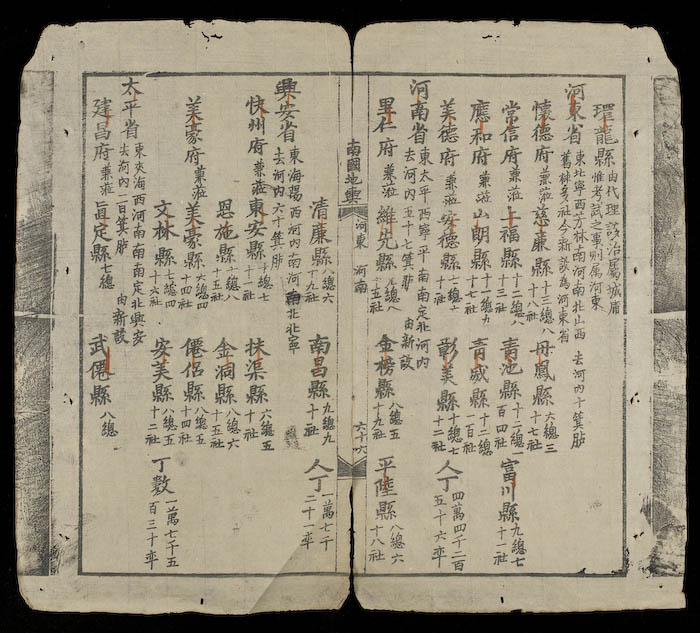 環龍縣 由代理該治屬城庸
縣惟考試之事則屬河東
河東省 東北寧西芳林南河南北山西 去河內十箕貼
舊林多社今新設為河東省
懷德府 兼涖慈廉縣 十三總八 十八社 丹鳳縣 六總三 十七社
常信府 兼涖上福縣 十二總八 十三社 青池縣 十二總一 百四社 富川縣 九總七 十一社
應和府 兼涖山朗縣 十一總九 十七社 青威縣 十二總 一百社
美德府 兼涖安德縣 七總 十七社 彰美縣 十總七 十二社 人丁 四萬四千二百 五十六率
河南省 東太平西寧平南南定北河內
去河內五十七箕貼 由新設
里仁府 兼涖維先縣 九總八 十五社 金榜縣 八總五 十九社 平陸縣 八總六 十八社
南國地輿 河東 河南 六十六
清廉縣 八總六 十九社 南昌縣 九總九 十社 人丁 一萬七千 二十一率
興安省 東海陽西河內南河南北北寧
去河內六十箕貼
快州府 兼涖東安縣 十總七 十社 扶渠縣 六總五 十社
恩施縣 十總八 十八社 金洞縣 八總六 十五社
美豪府 兼涖美豪縣 六總四 十四社 僊侶縣 八總五 十四社
文林縣 七總四 十六社 安美縣 八總五 十二社 丁數 一萬七千五 百三十率
太平省 東夾海西河南南南定北興安
去河內二日箕貼 由新設
建昌府 兼涖真定縣 七總 武僊縣 八總